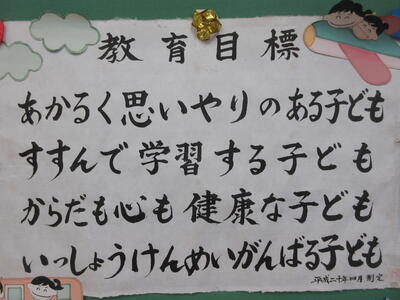 教育目標
あかるく思いやりのある子ども
すすんで学習する子ども
からだも心も健康な子ども
いっしょうけんめいがんばる子ども
平成二十年四月制定